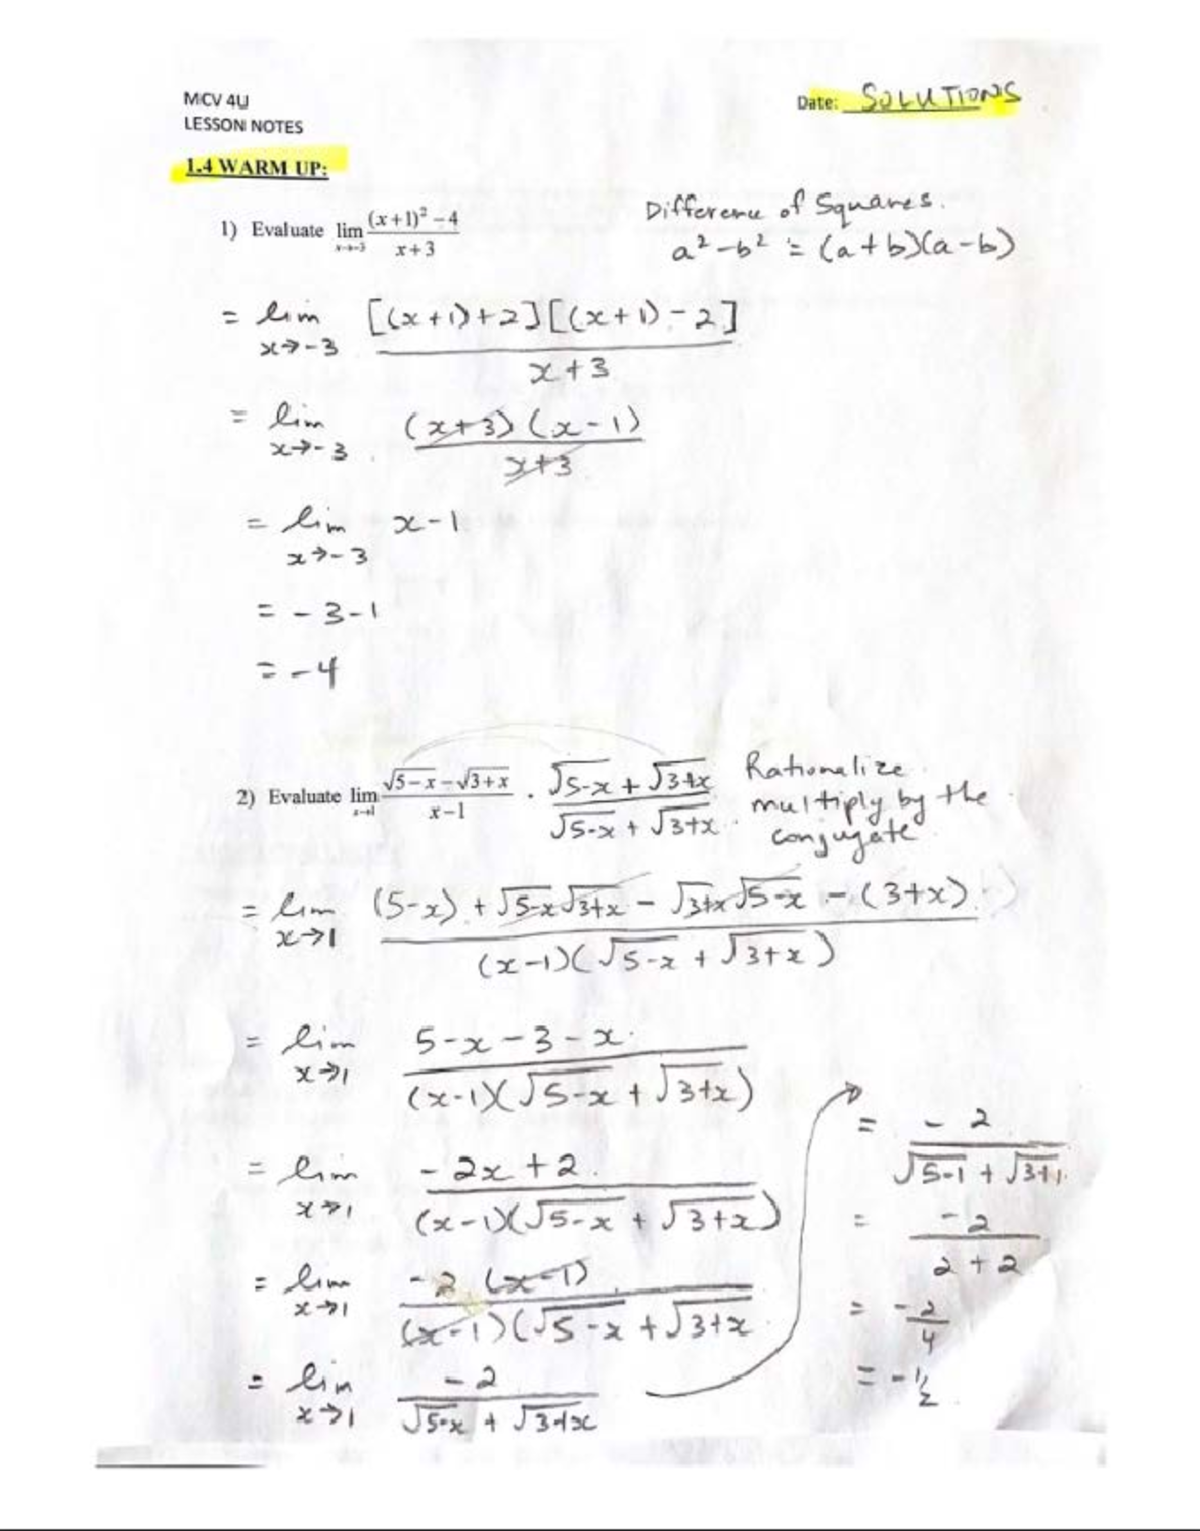 MCV 4U
Date: SOLUTIONS
LESSON NOTES
1.4 WARM UP:
1) Evaluate lim x→-3 ((x+1)² − 4)/(x+3)
Difference of Squares.
a² − b² = (a+b)(a−b)
= lim x→-3 [(x+1)+2][(x+1)−2]/(x+3)
= lim x→-3 (x+3)(x−1)/(x+3)
= lim x→-3 x−1
= −3−1
= −4
2) Evaluate lim x→1 (√(5−x) − √(3+x))/(x−1) · (√(5−x) + √(3+x))/(√(5−x) + √(3+x))
Rationalize
multiply by the
conjugate
= lim x→1 ((5−x) + √(5−x)√(3+x) − √(3+x)√(5−x) − (3+x))/((x−1)(√(5−x) + √(3+x)))
= lim x→1 (5−x−3−x)/((x−1)(√(5−x) + √(3+x)))
= lim x→1 (−2x+2)/((x−1)(√(5−x) + √(3+x)))
= lim x→1 −2(x−1)/((x−1)(√(5−x) + √(3+x)
= lim x→1 −2/(√(5−x) + √(3+x))
= −2/(√(5−1) + √(3+1))
= −2/(2+2)
= −2/4
= −1/2